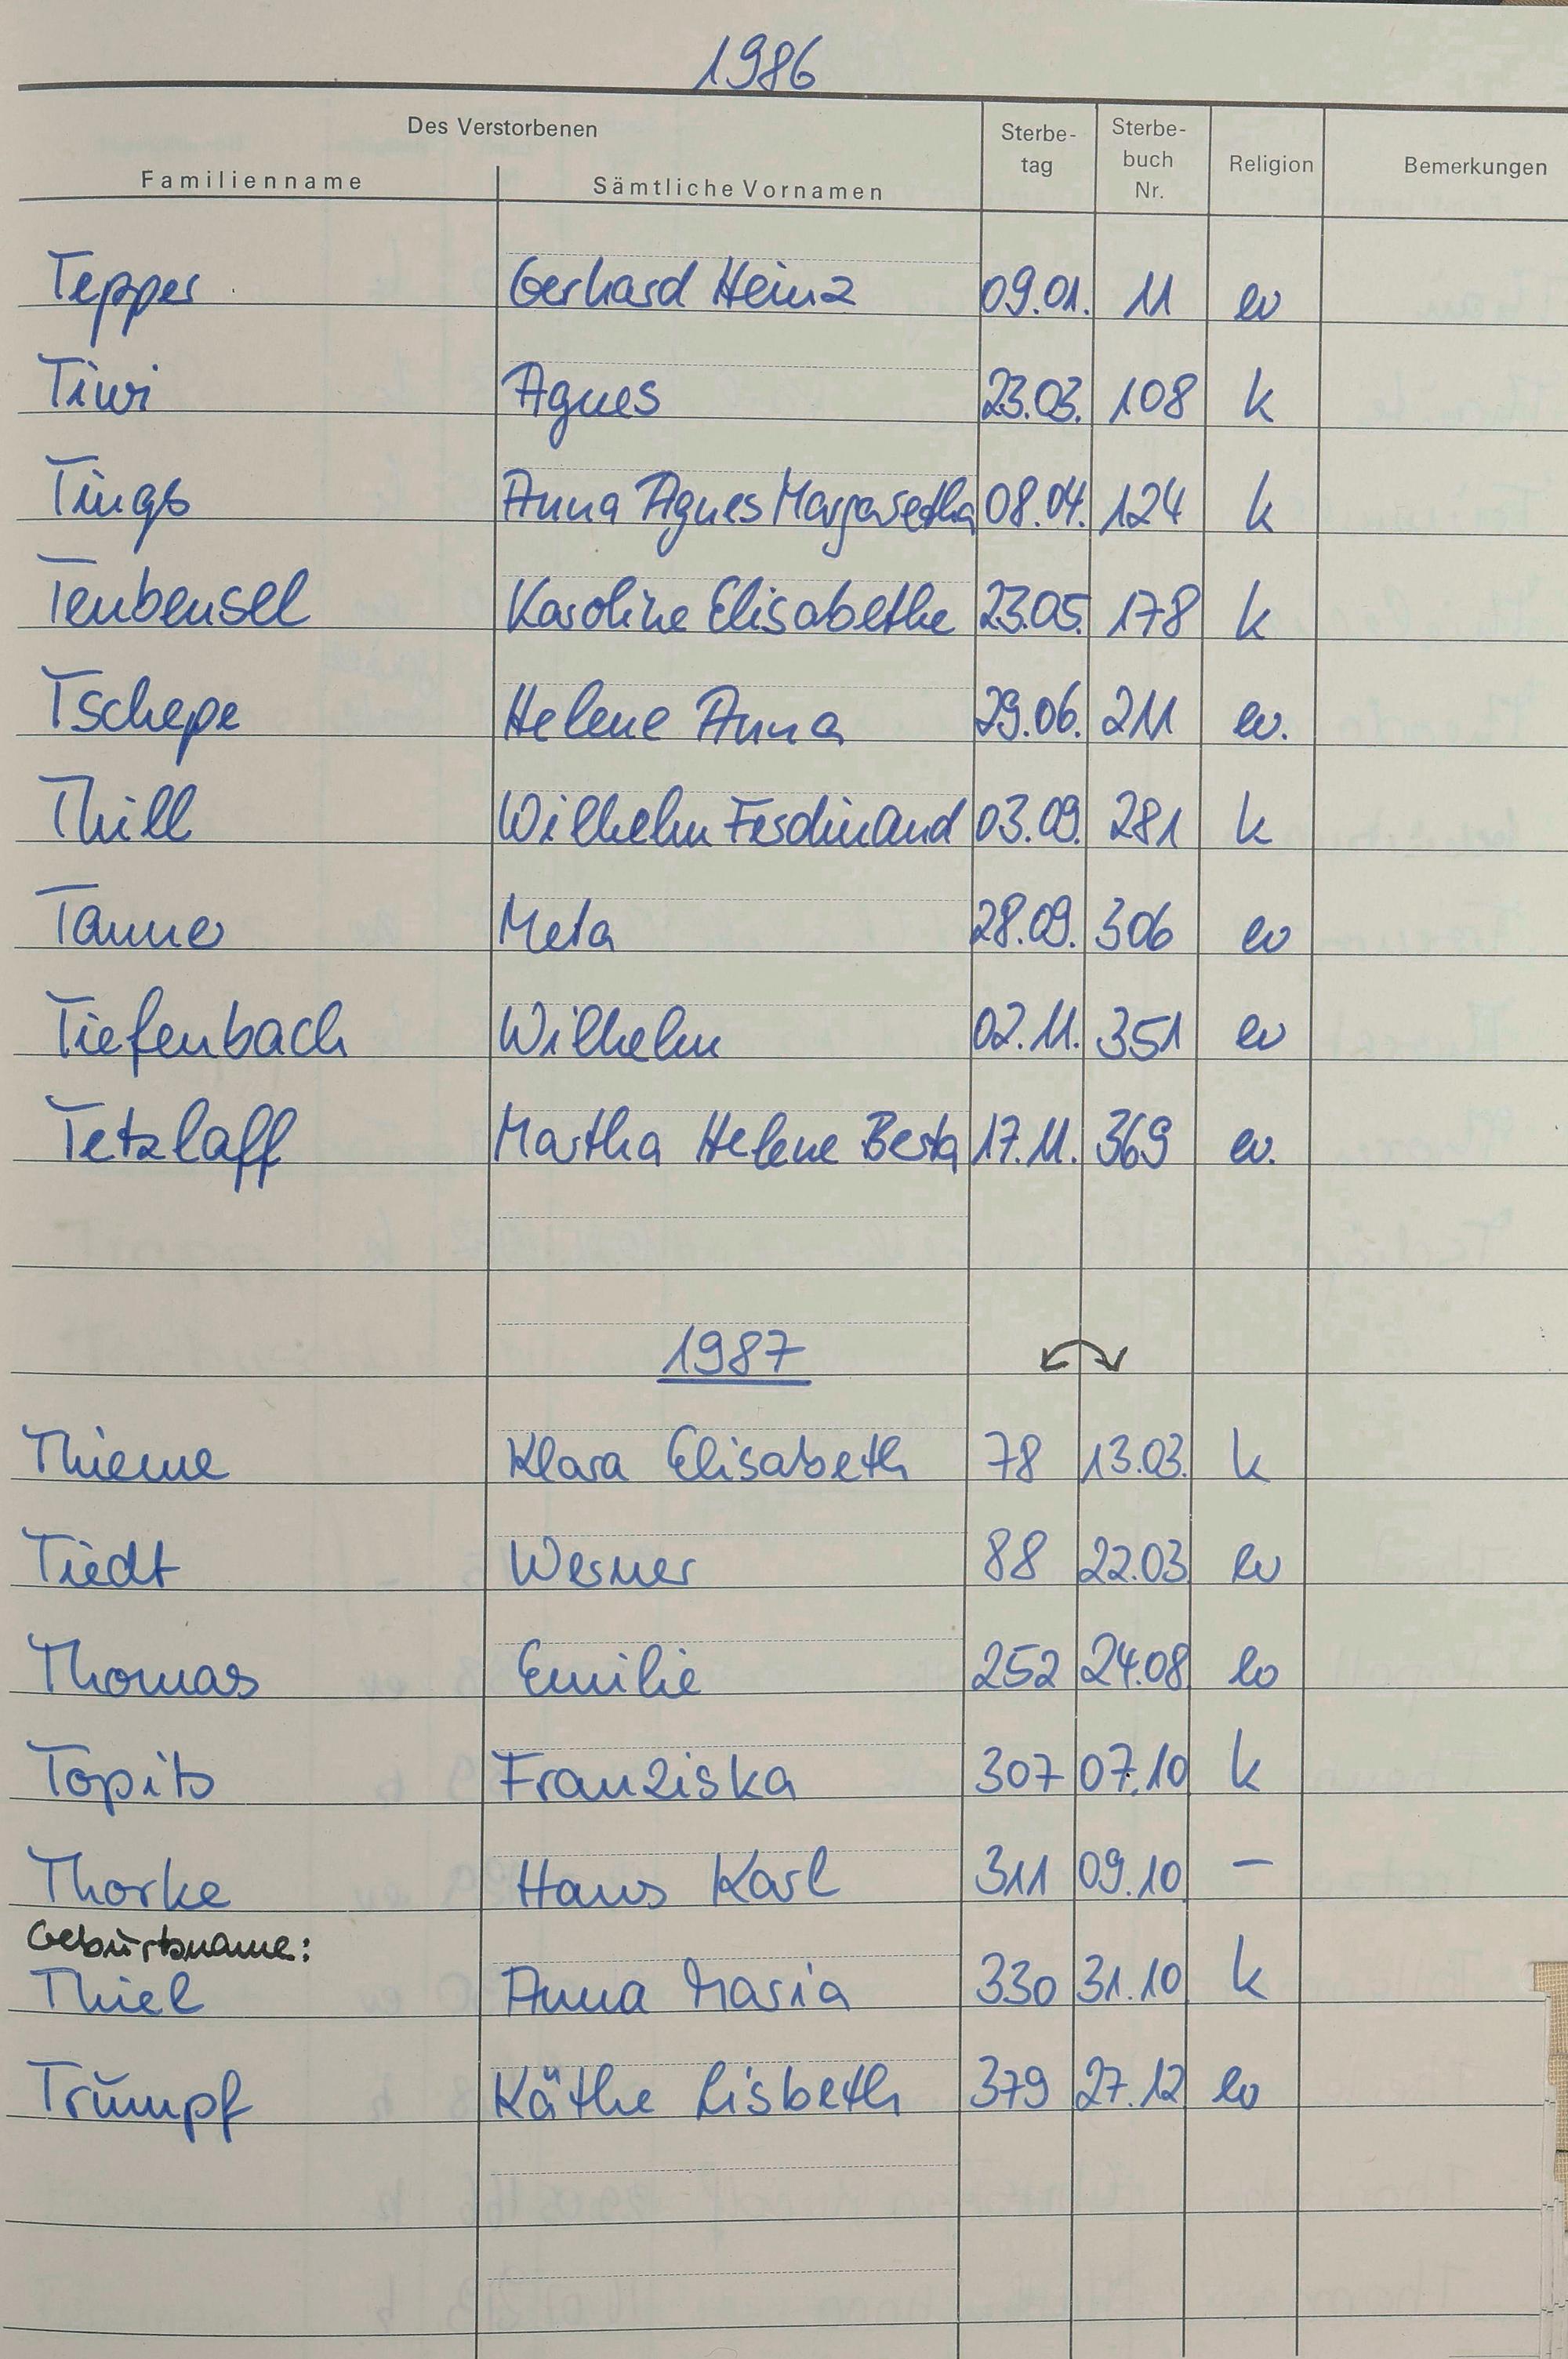 1986
Des Verstorbenen
Familienname Sämtliche Vornamen Sterbe-tag Sterbe-buch Nr. Religion Bemerkungen
Tepper Gerhard Heinz 09.01. 11 ev
Tiwi Agnes 23.03. 108 k
Tings Anna Agnes Margaretha 08.04. 124 k
Teubensel Karoline Elisabethe 23.05. 178 k
Tschepe Helene Anna 29.06. 211 ev.
Thill Wilhelm Ferdinand 03.09. 281 k
Meta 28.09. 306 ev
Tiefenbach Wilhelm 02.11. 351 ev
Tetzlaff Martha Helene Berta 17.11. 369 ev.
1987
Thieme Klara Elisabeth 78 13.03. k
Tiedt Werner 88 22.03 ev
Thomas Emilie 252 24.08 ev
Topits Franziska 307 07.10 k
Thorke Hans Karl 311 09.10 –
Geburtsname:
Thiel Anna Maria 330 31.10 k
Trumpf Käthe Lisbeth 379 27.12 ev